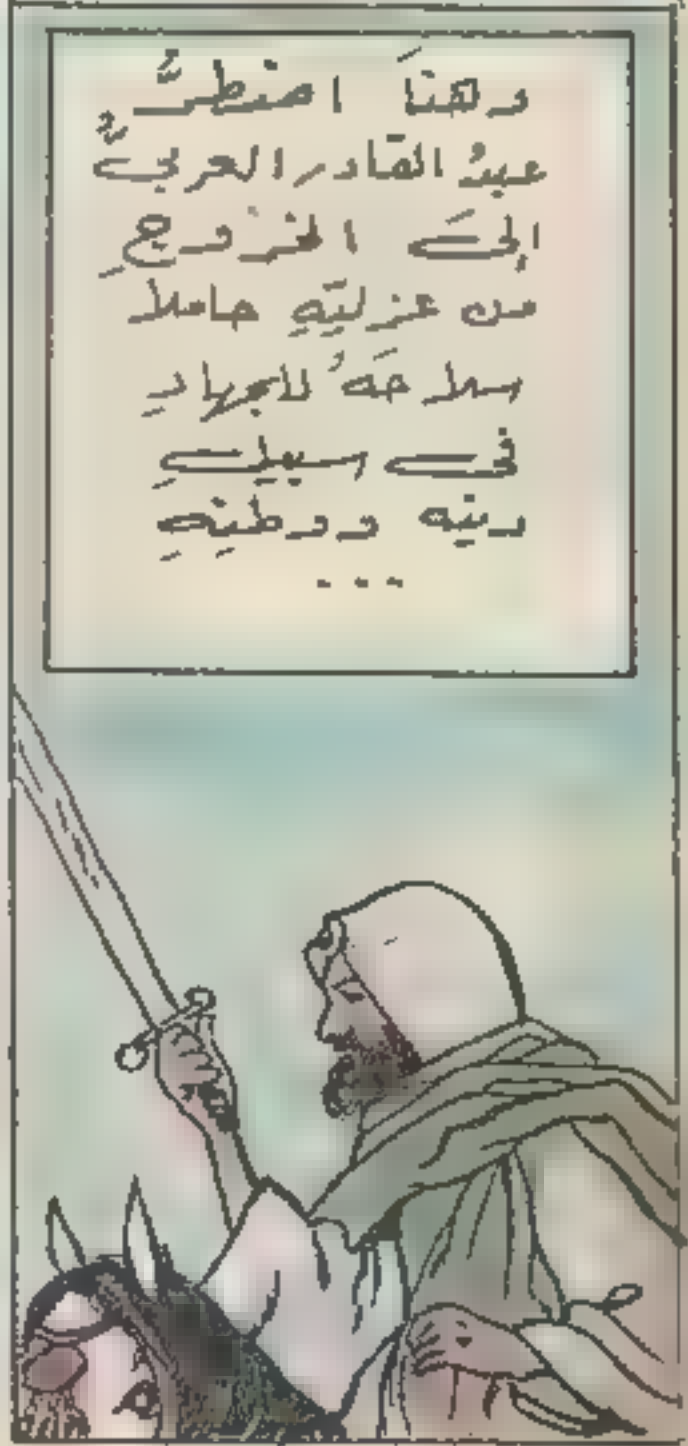 وهنَا اضطرَّ
عبدُ القادر العربيُّ
إلىَ الخروجِ
من عزلتِهِ حاملاً
سلاحَهُ للجهادِ
في سبيلِ
دينِه ووطنِهِ
...